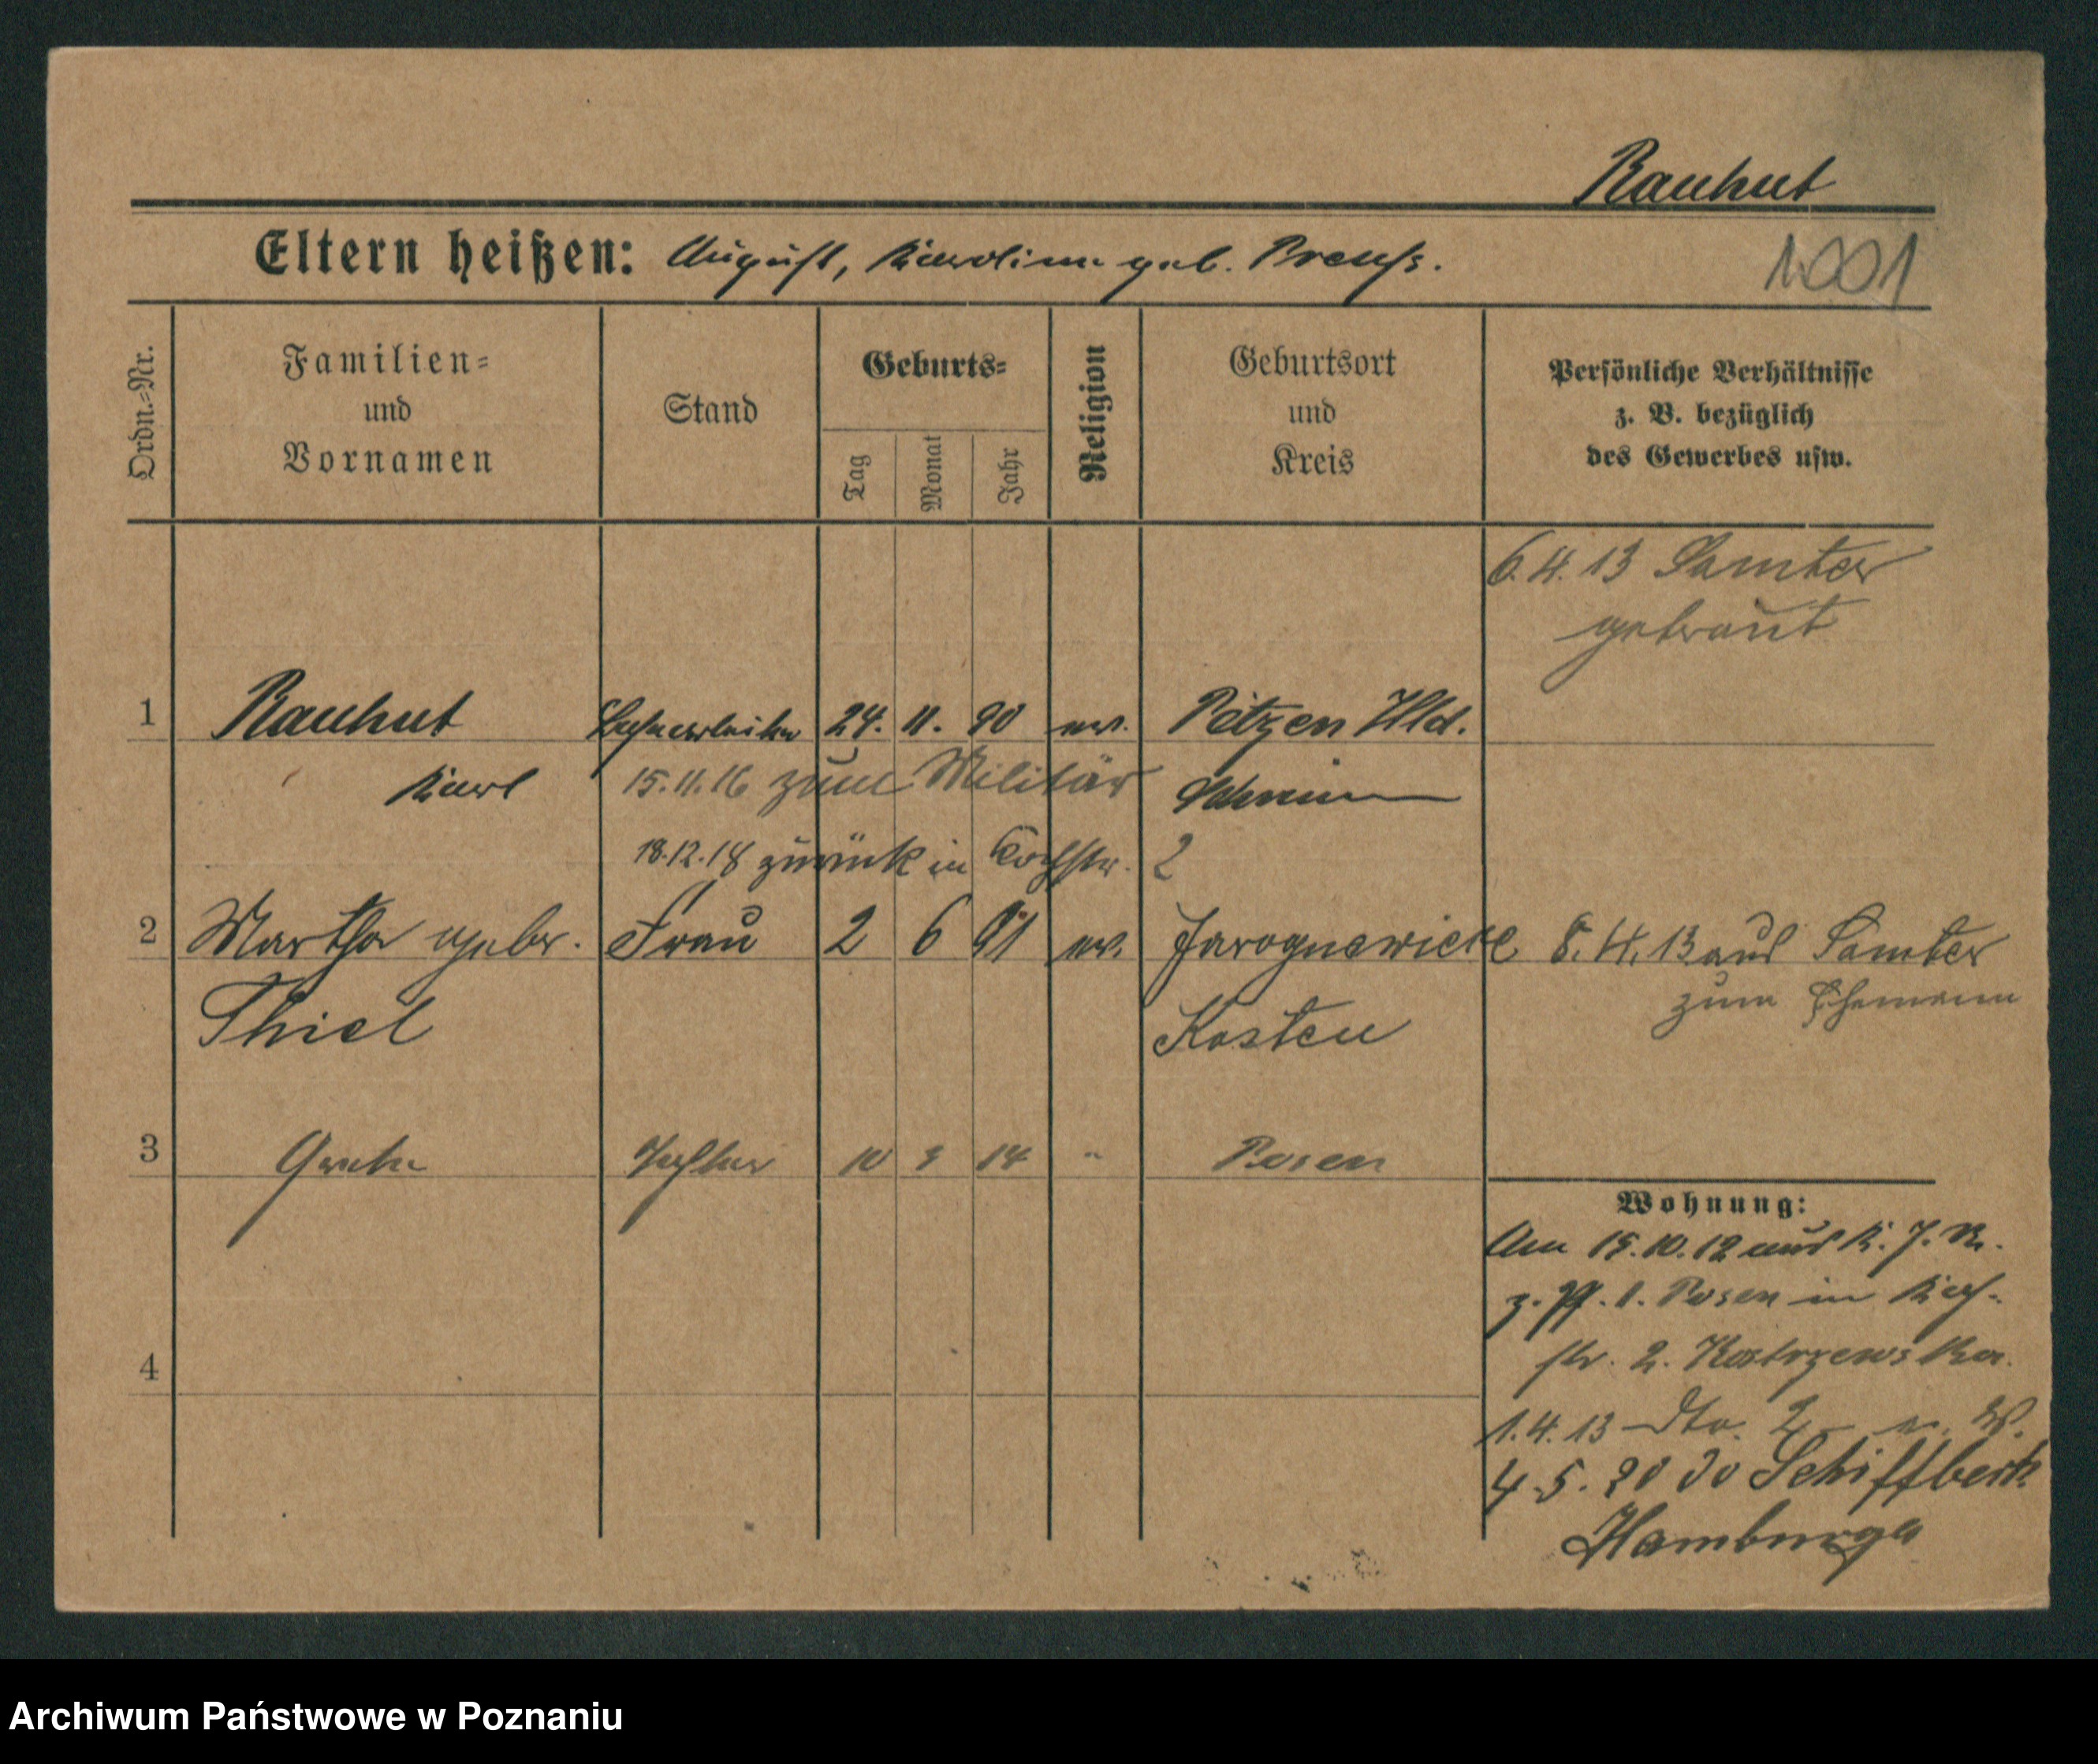 Rauhut
Eltern heißen: August, Karoline geb. Preuß.
1001
Ordn.-Nr.
Familien-
und
Vornamen
Stand
Geburts-
Tag
Monat
Jahr
Religion
Geburtsort
und
Kreis
Persönliche Verhältnisse
z. B. bezüglich
des Gewerbes usw.
6.4.13 Samter
getraut
1 Rauhut 24. 11. 90 ev. Petzen Hld.
Karl 15.11.16 zum Militär Schrimm
18.12.18 zurück in 2
2 Martha gebr. Frau 2 6 91 ev. Jarognewice 8.4.13 aus Samter
zum Ehemann
Thiel Kosten
3 Grete Tochter 10 14 " Posen
Wohnung:
Am 15.10.12 aus
Posen in
str. 2. Kostrzewska.
4
1.4.13 dto. 2
4.5.20 Schiffbeck
Hamburg
Archiwum Państwowe w Poznaniu